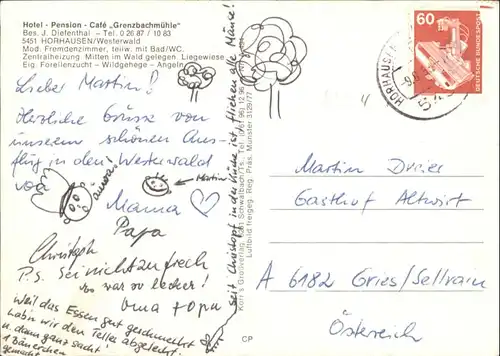 Hotel - Pension - Café „Grenzbachmühle"
Bes. J. Diefenthal – Tel. 0 26 87 / 10 83
5451 HORHAUSEN/Westerwald
Mod. Fremdenzimmer, teilw. mit Bad/WC.
Zentralheizung. Mitten im Wald gelegen. Liegewiese
Eig. Forellenzucht – Wildgehege – Angeln
Lieber Martin!
Herzliche Grüsse von
unserem schönen Aus-
flug in den Westerwald
von
Mama
Papa
Christoph
P.S. Sei nicht zu frech
war so lecker!
Oma + Opa
Weil das Essen gut geschmeckt
hab'n wir den Teller abgeleckt.
u. dann ganz sacht
1 Bäuerchen
gemacht
Martin
seit Christoph in der Küche ist, fliehen alle Mäuse!
Korr's Großverlag, Schwalbach/Ts., Tel.
Luftbild freigeg. Reg. Präs. Münster
CP
60
DEUTSCHE BUNDESPOST
HORHAUSEN
Martin Dreier
Gasthof Altwirt
A 6182 Gries/Sellrain
Österreich